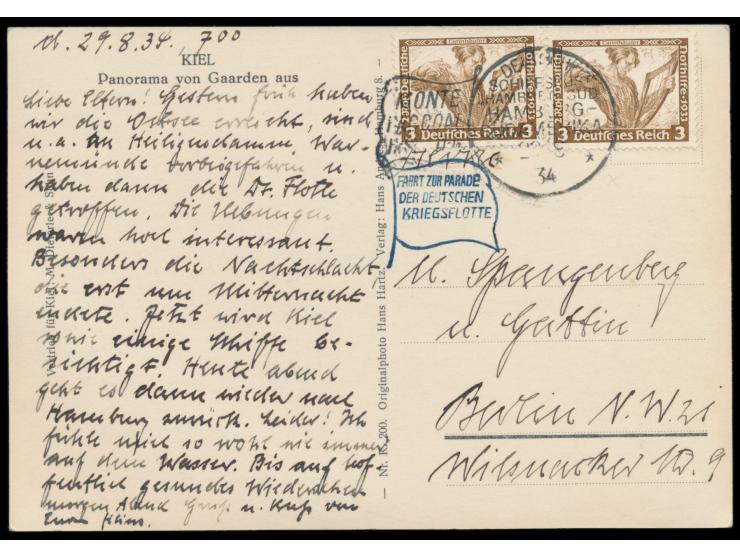 d. 29.8.34, 7 00
KIEL
Panorama von Gaarden aus
Liebe Eltern! Gestern früh haben
wir die Ostsee erreicht, sind
u.a. an Heiligendamm, War-
nemünde vorbeigefahren u.
haben dann die Dt. Flotte
getroffen. Die Uebungen
waren hoch interessant.
Besonders die Nachtschlacht,
die erst um Mitternacht
endete. Jetzt wird Kiel
sowie einige Schiffe be-
sichtigt. Heute abend
geht es dann wieder nach
Hamburg zurück. Leider! Ich
fühle mich so wohl wie immer
auf dem Wasser. Bis auf hof-
fentlich gesundes Wiedersehen
morgen Abend Gruß u. Kuß von
Eurem Heinz.
Vertrieb für Kiel: M. Dieterle &
Nr. K. 200. Originalphoto Hans Hartz. Verlag: Hans Hamburg 8.
Deutsches Reich
3 3
Tannhäuser
Nothilfe · 1933
Deutsches Reich
3 3
Tannhäuser
Nothilfe · 1933
MONTE
DEUTSCHE
SCHIFFSPOST
HAMBURG-SÜD
HAMBURG-
34
FAHRT ZUR PARADE
DER DEUTSCHEN
KRIEGSFLOTTE
M. Spangenberg
u. Gattin
Berlin N.W. 21
Wilsnacker Str. 9